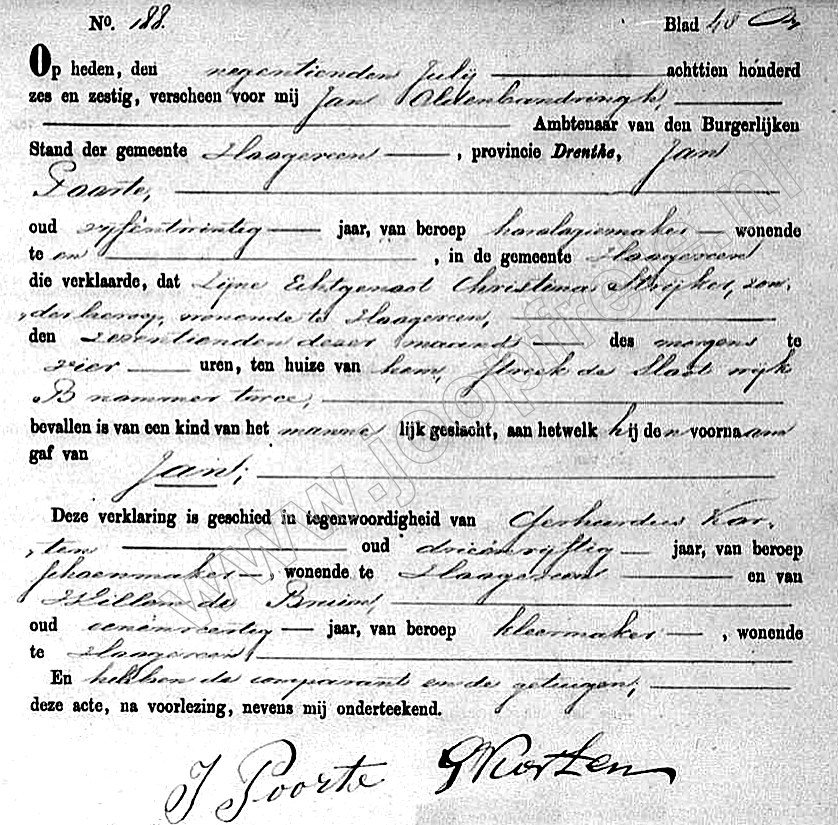 No. 188.
Blad 48
Op heden, den negentienden Julij achttien honderd
zes en zestig, verscheen voor mij Jan Oldenbandringh,
Ambtenaar van den Burgerlijken
Stand der gemeente Hoogeveen, provincie Drenthe, Jan
Poorte,
oud vijfentwintig jaar, van beroep horologiemaker wonende
te en, in de gemeente Hoogeveen
die verklaarde, dat Zijne Echtgenoot Christina Strijker, zon-
der beroep, wonende te Hoogeveen,
den zezentienden dezer maand des morgens te
vier uren, ten huize van hem, streek de Slood wijk
B nommer twee,
bevallen is van een kind van het mannelijk geslacht, aan hetwelk hij den voornaam
gaf van
Jan;
Deze verklaring is geschied in tegenwoordigheid van Gerhardus Kor-
ten oud drieënvijftig jaar, van beroep
schoenmaker, wonende te Hoogeveen en van
Willem de Bruin,
oud eenënveertig jaar, van beroep kleermaker, wonende
te Hoogeveen,
En hebben de comparant en de getuigen,
deze acte, na voorlezing, nevens mij onderteekend.
J Poorte GKorten
www.joopfrege.nl